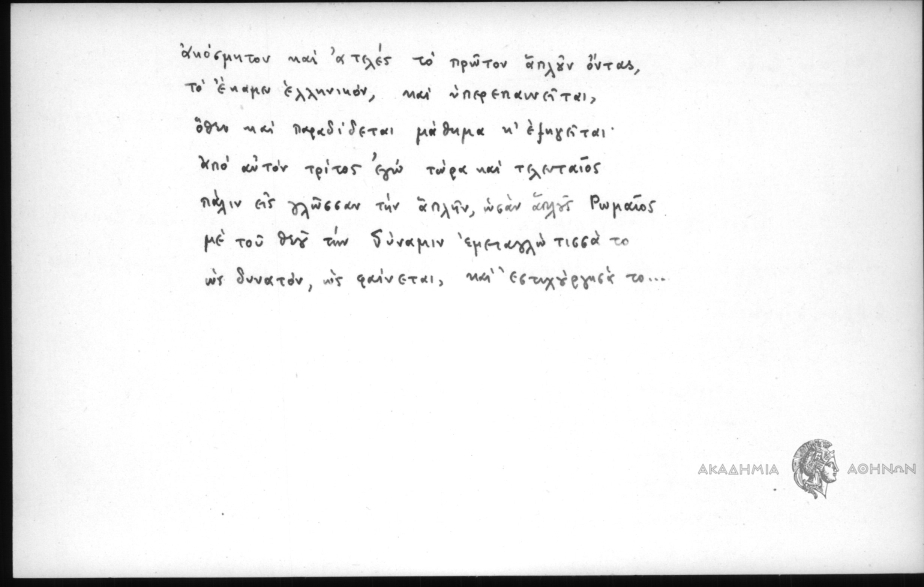 ἀκόσμητον καὶ ἀτελές τὸ πρῶτον ἁπλοῦν ὄντας,
τὸ ἔκαμεν ἑλληνικόν, καὶ ὑπερεπαινεῖται,
ὅθεν καὶ παραδίδεται μάθημα κ' ἐξηγεῖται·
Ἀπό αὐτόν τρίτος ἐγώ τώρα καὶ τελευταῖος
πάλιν εἰς γλῶσσαν τὴν ἁπλῆν, ὡσάν ἁπλοῦς Ρωμαῖος
μὲ τοῦ θεοῦ τὴν δύναμιν ἐμεταγλώτισσά το
ὡς δυνατόν, ὡς φαίνεται, καὶ ἐστιχούργησά το...
ΑΚΑΔΗΜΙΑ ΑΘΗΝΩΝ